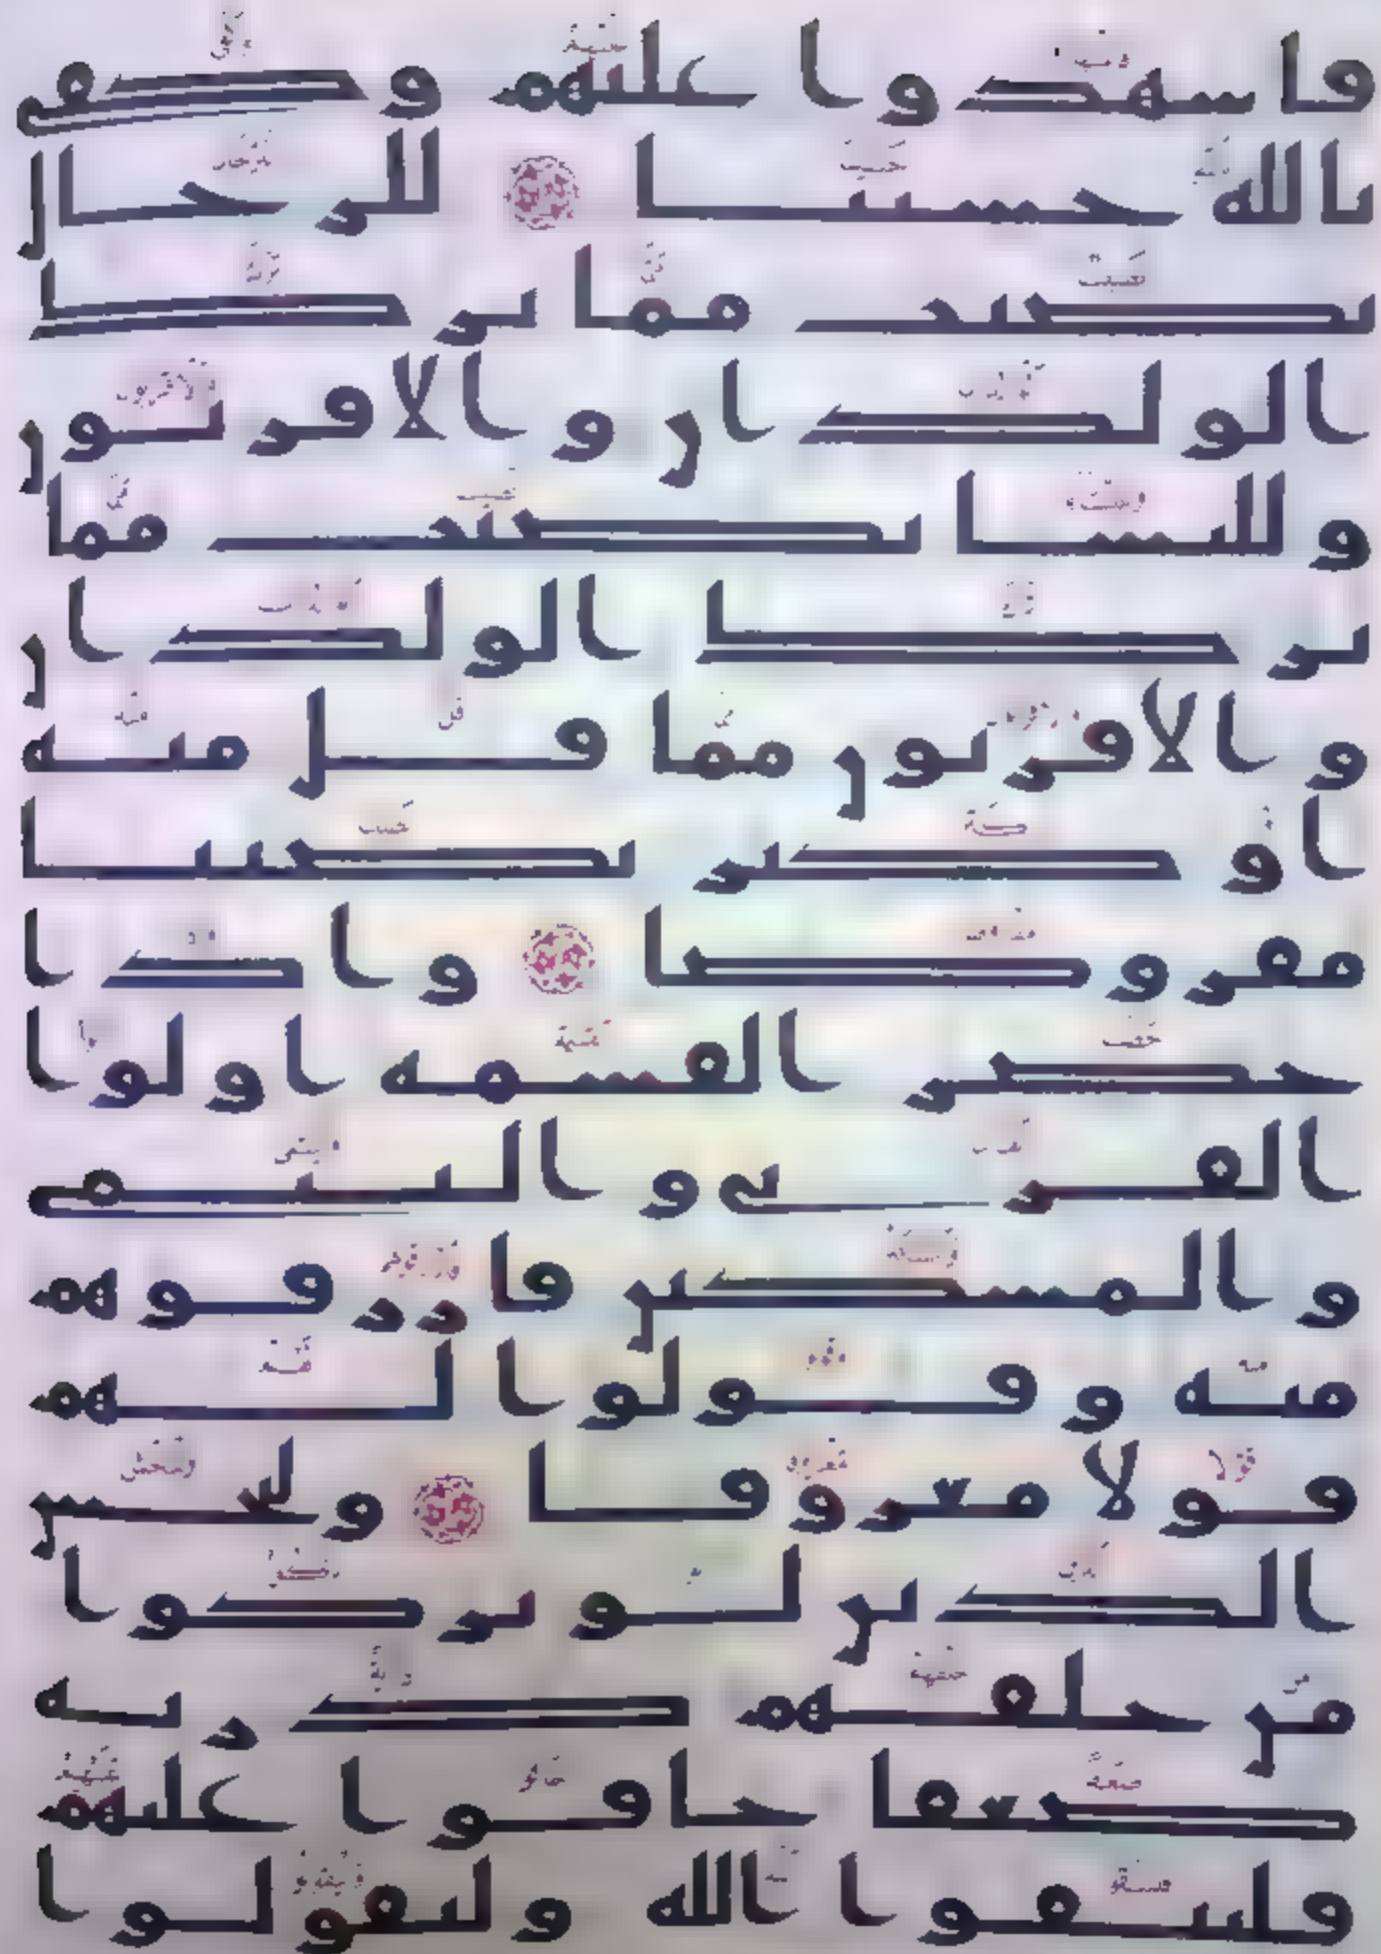 فاشهدوا عليهم وكفى
بالله حسيبا للرجال
نصيب مما ترك
الولدان والاقربون
وللنسا نصيب مما
ترك الولدان
والاقربون مما قل منه
او كثر نصيبا
مفروضا واذا
حضر القسمة اولوا
القربى واليتمى
والمسكين فارزقوهم
منه وقولوا لهم
قولا معروفا وليخش
الذين لو تركوا
من خلفهم ذرية
ضعفا خافوا عليهم
فليتقوا الله وليقولوا